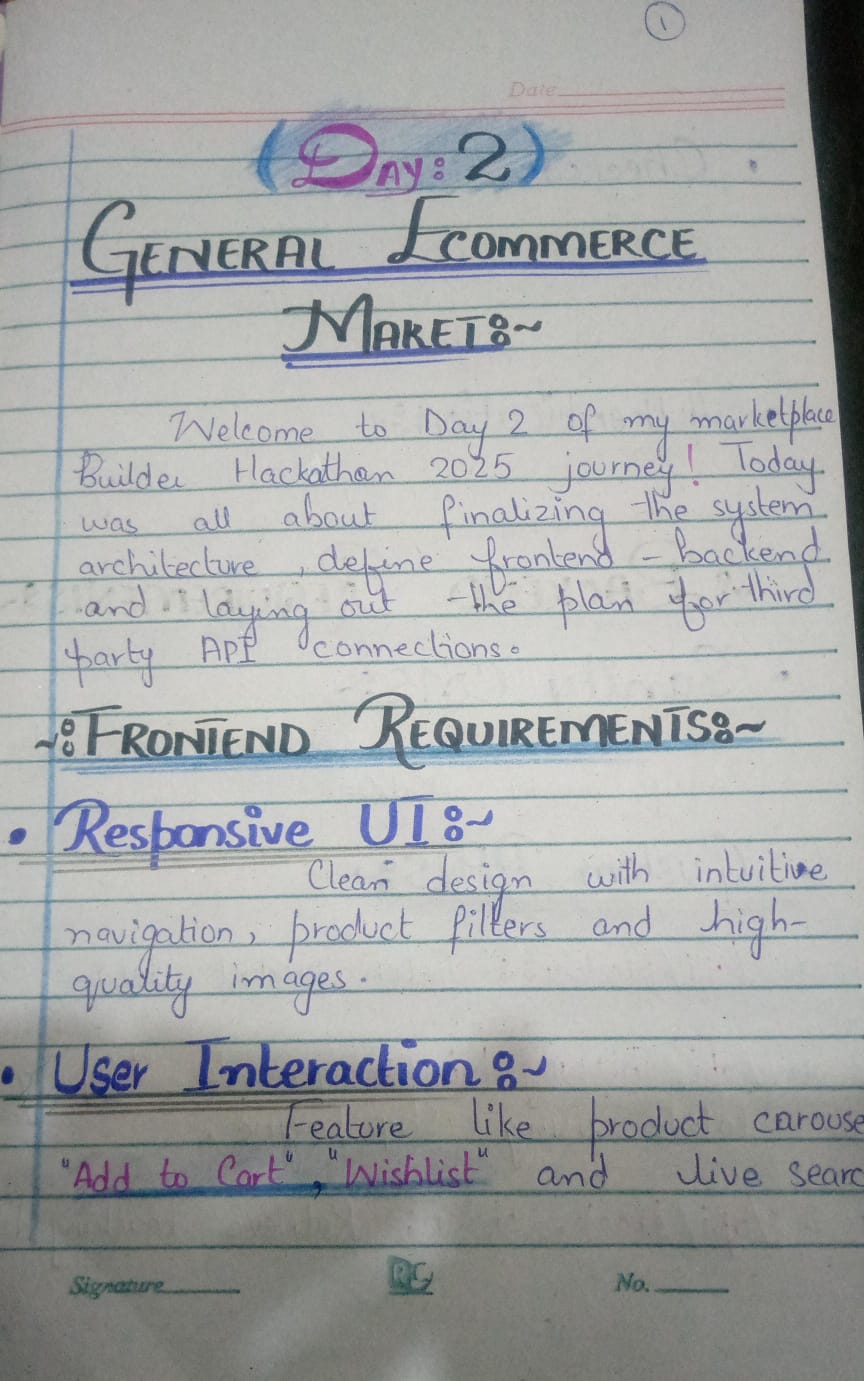 1
Date
(Day: 2)
GENERAL ECOMMERCE
MAKET:~
Welcome to Day 2 of my marketplace
Builder Hackathan 2025 journey! Today
was all about finalizing the system
architecture, define frontend - backend
and laying out the plan for third
party API connections.
~:FRONTEND REQUIREMENTS:~
• Responsive UI:~
Clean design with intuitive
navigation, product filters and high-
quality images.
• User Interaction:~
Feature like product carouse
"Add to Cart", "Wishlist" and live searc
Signature RG No.